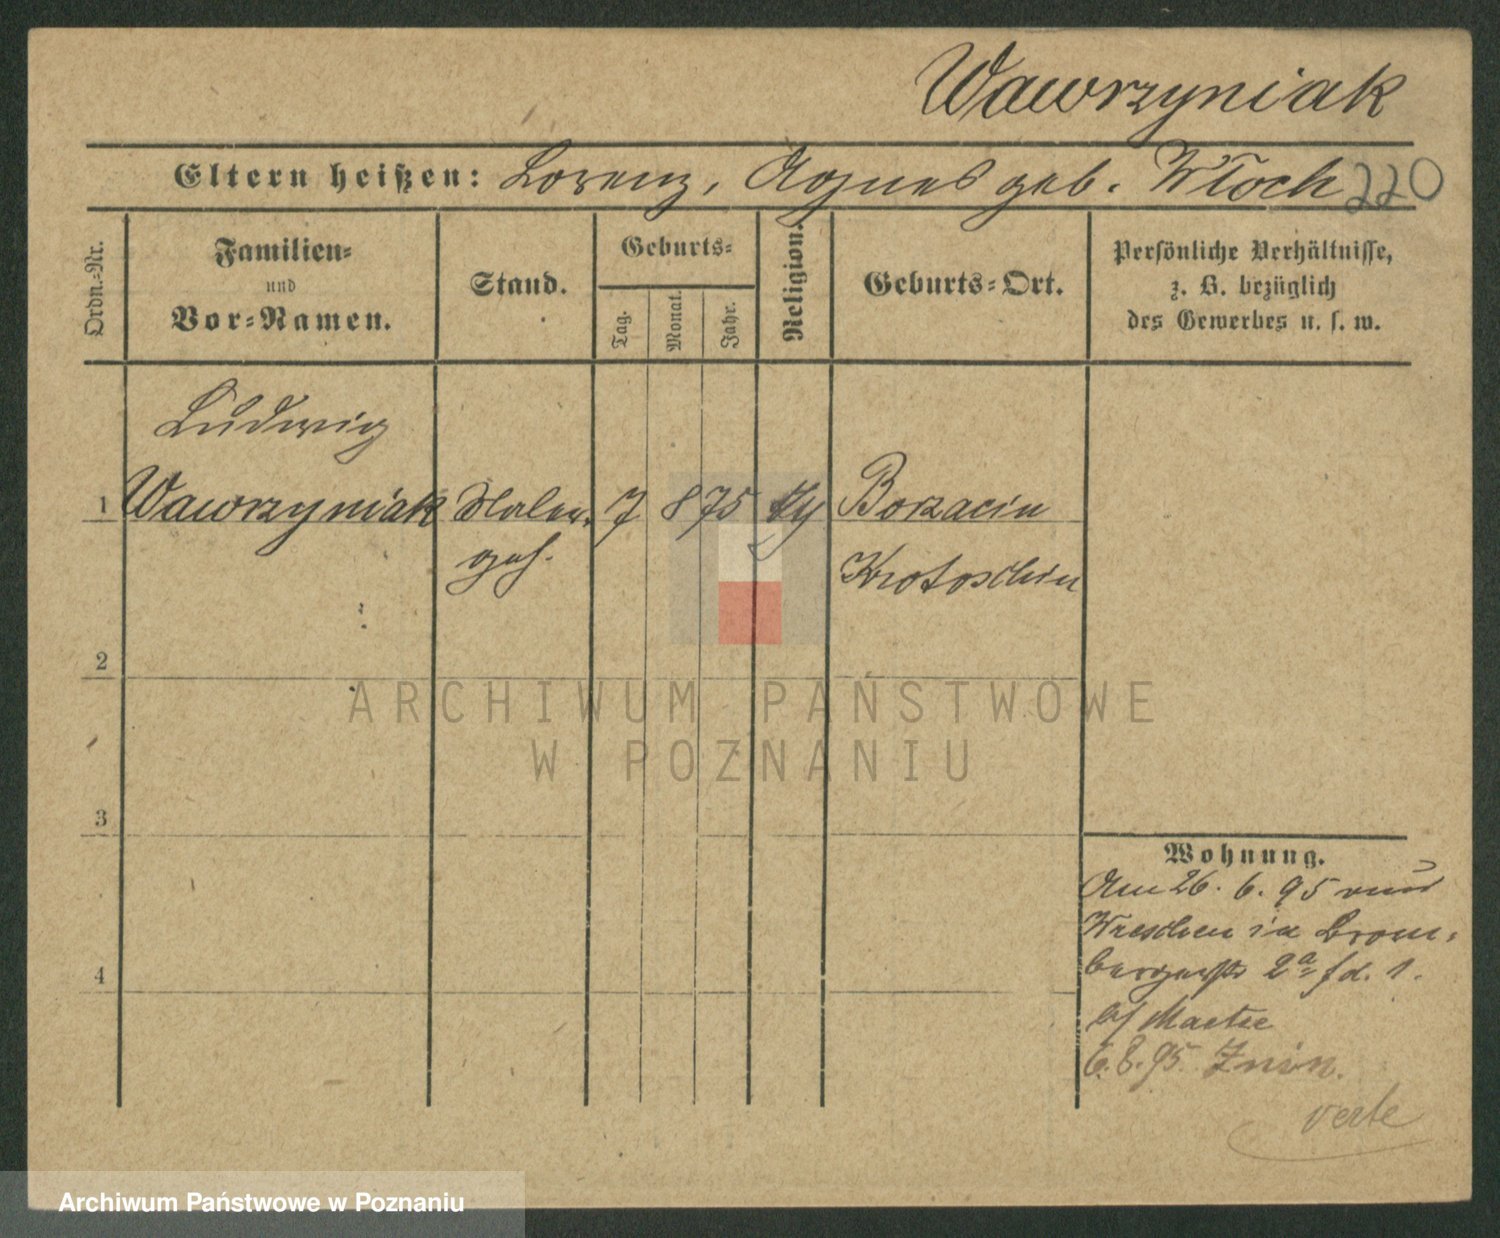 Wawrzyniak
Eltern heißen: Lorenz, Agnes geb. Włoch 220
Ordn.-Nr.
Familien-
und
Vor-Namen.
Stand.
Geburts-
Tag.
Monat.
Jahr.
Religion.
Geburts-Ort.
Persönliche Verhältnisse,
z. B. bezüglich
des Gewerbes u. s. w.
Ludwig
1 Wawrzyniak Maler 7 8 75 Borzaciu
geh. Krotoschin
2
3
4
Wohnung.
Am 26. 6. 95 aus
Wreschen in Brom-
bergerstr 2a
b/
6. 8. 95 Znin.
verte
ARCHIWUM PAŃSTWOWE
W POZNANIU
Archiwum Państwowe w Poznaniu